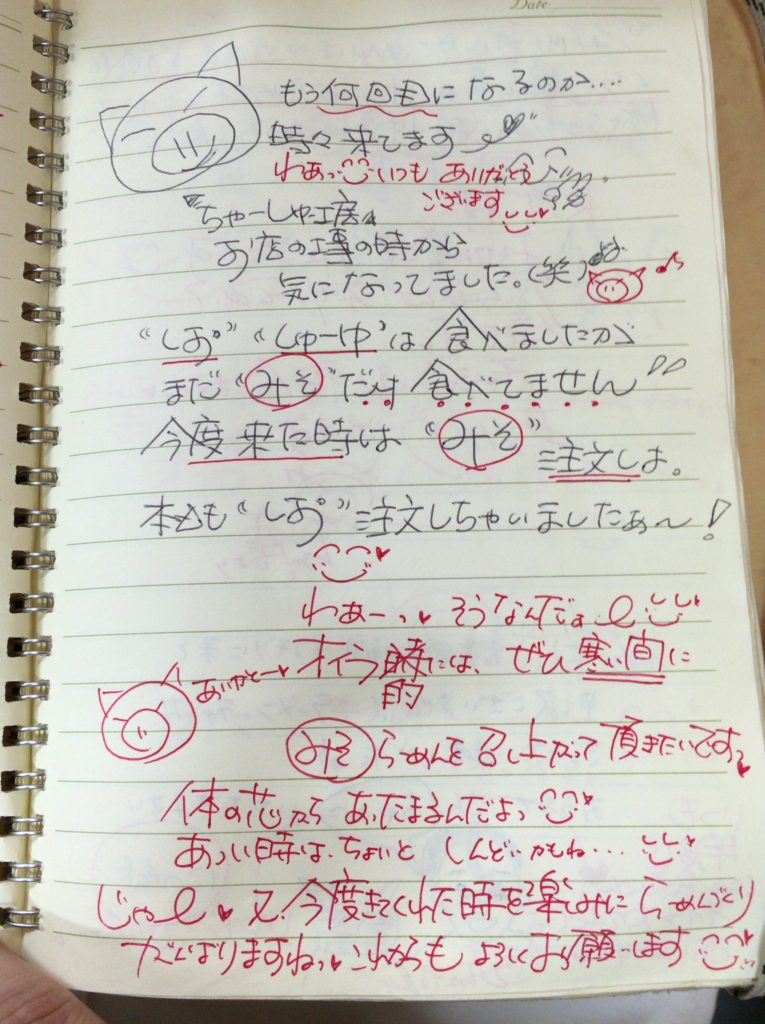 Date:
もう何回目になるのか…
時々来てます
わぁっ いつも ありがとう
ございます
"ちゃーしゅー工房"
お店の工事の時から
気になってました。(笑)
"しお" "しょーゆ"は食べましたが
まだ "みそ" だけ 食べてません
今度来た時は "みそ"
注文しよ。
本日も "しお" 注文しちゃいましたぁ〜!
わぁーっ そうなんだぁ
ありがとー オイラ的には、ぜひ寒い間に
みそ らーめんを召し上がって頂きたいです
体の芯から あったまるんだよっ
あつい時は、ちょいと しんどいかもね…
じゃ 又、今度きてくれた時を楽しみに らーめんづくり
がんばりますねっ これからも よろしくお願いします